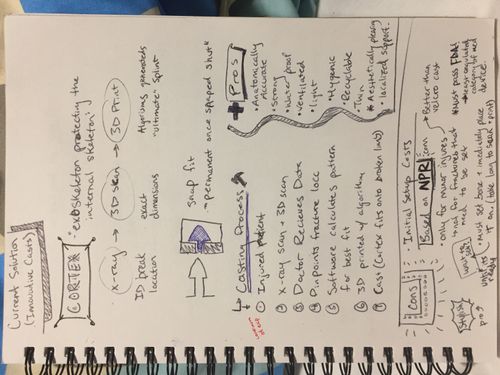 Current Solution
(Innovative Casts)
CORTEX
"exoskeleton protecting the
internal skeleton"
x-ray → 3D scan → 3D Print
ID break
location
exact
dimensions
generates
"ultimate" splint
snap fit
~permanent once snapped shut*
Casting Process
① Injured patient
② X-ray scan + 3D scan
③ Doctor Recieves Data
④ Pinpoints fracture loc
⑤ Software calculates pattern
for best fit
⑥ 3D printed w/ algorithm
⑦ Cast (Cortex fits onto broken limb)
+ Pros
• Anatomically
Accurate
• Strong
• Water proof
• Ventilated
• light
• Hygenic
• Recyclable
• Thin
* Aesthetically pleasing
• localized support
Cons
Initial Setup Costs
Based on NPR.com
• only for minor injures
+ not for fractures that
need to be set
→ Better than
velcro cast
*Must pass FDA!
device.
• Must set bone + immediately place